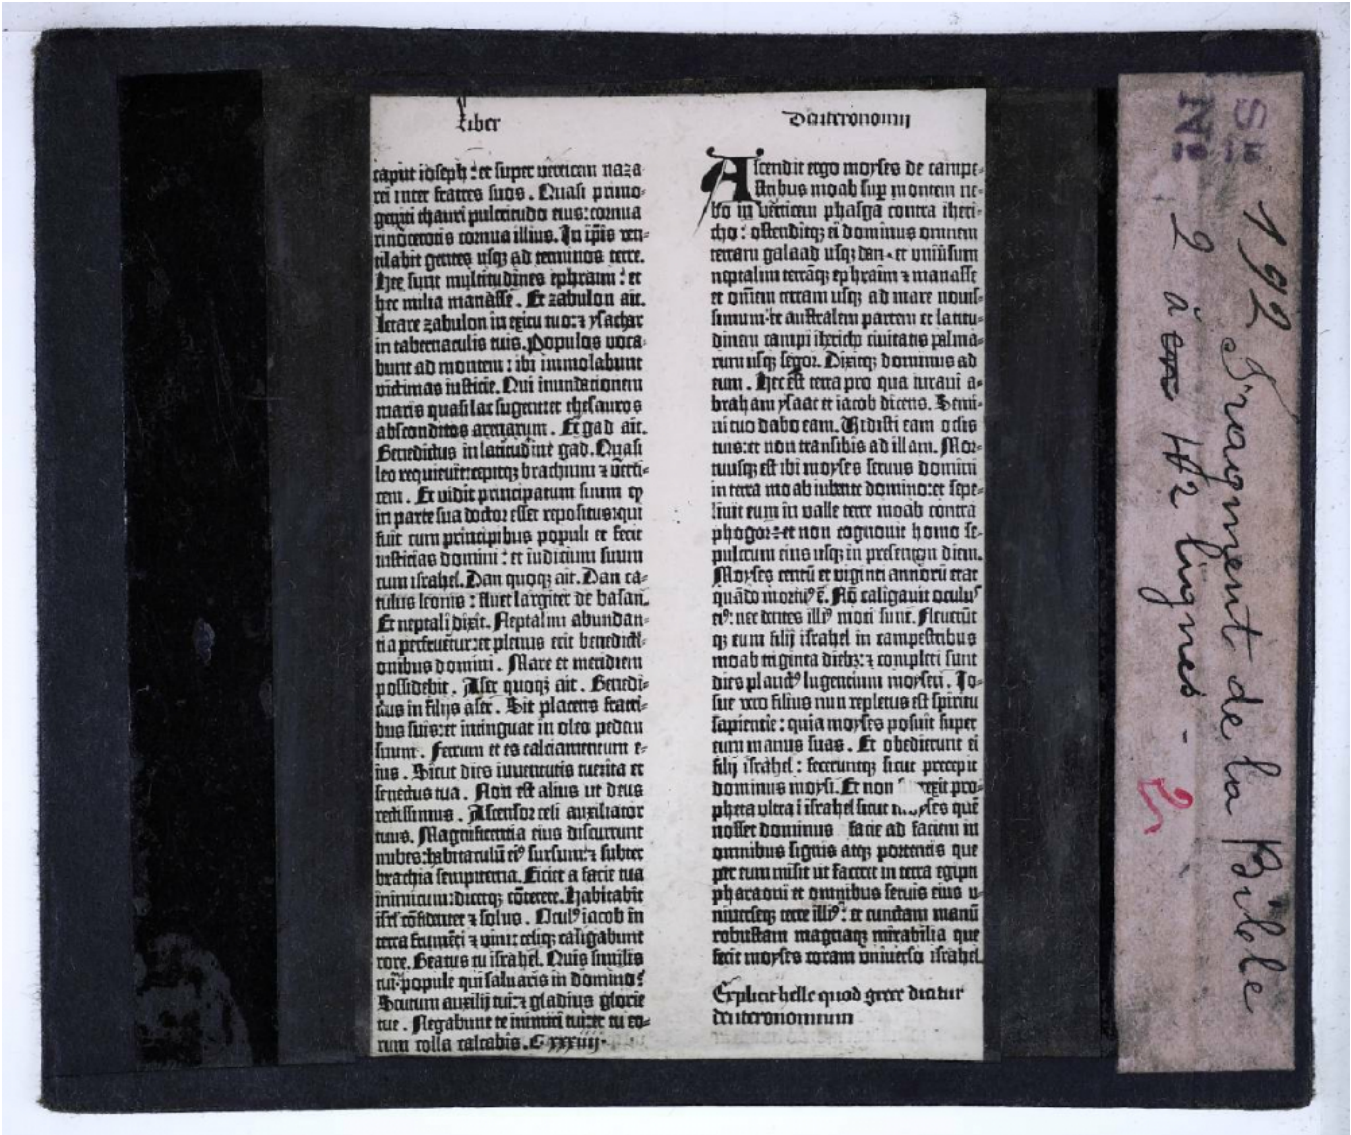 Liber
Deuteronomij
caput ioseph : et super verticem naza-
rei inter fratres suos . Quasi primo-
geniti thauri pulcritudo eius: cornua
rinocerotis cornua illius. In ip̃is ven-
tilabit gentes usq; ad terminos terre.
Hee sunt multitudines ephraim : et
hec milia manasse . Et zabulon ait.
letare zabulon in exitu tuo: ⁊ ysachar
in tabernaculis tuis. Populos voca-
bunt ad montem : ibi immolabunt
victimas iusticie. Qui inundationem
maris quasi lac sugent: et thesauros
absconditos arenarum . Et gad ait.
Benedictus in latitudine gad. Quasi
leo requievit: cepitq; brachium ⁊ verti-
cem . Et vidit principatum suum q
in parte sua doctor esset repositus: qui
fuit cum principibus populi et fecit
iusticias domini : et iudicium suum
cum israhel. Dan quoq; ait. Dan ca-
tulus leonis : fluet largiter de basan.
Et neptali dixit. Neptalim abundan-
tia perfruetur: et plenus erit benedicti-
onibus domini . Mare et meridiem
possidebit . Aser quoq; ait . Benedi-
ctus in filijs aser . Sit placens fratri-
bus suis: et intinguat in oleo pedem
suum . Ferrum et es calciamentum e-
ius . Sicut dies iuventutis tue: ita et
senectus tua . Non est alius ut deus
rectissimus . Ascensor celi auxiliator
tuus. Magnificentia eius discurrunt
nubes: habitaculū ei⁹ sursum: ⁊ subter
brachia sempiterna. Eiciet a facie tua
inimicum: dicetq; cōterere. Habitabit
isrl̄ cōfidenter ⁊ solus . Ocul⁹ iacob in
terra frumēti ⁊ vini: celiq; caligabunt
rore. Beatus tu israhel. Quis similis
tui popule qui salvaris in domino?
Scutum auxilij tui: ⁊ gladius glorie
tue . Negabunt te inimici tui: et tu eo-
rum colla calcabis. C xxxiiij·
Ascendit ergo moyses de campe-
stribus moab sup montem ne-
bo in verticem phasga contra iheri-
cho : ostenditq; ei dominus omnem
terram galaad usq; dan · et univ̄sum
neptalim terrāq; ephraim ⁊ manasse
et om̄em terram usq; ad mare novis-
simum· et australem partem et latitu-
dinem campi ihericho civitatis palma-
rum usq; segor. Dixitq; dominus ad
eum . Hec est terra pro qua iuravi a-
braham ysaac et iacob dicens. Semi-
ni tuo dabo eam. Vidisti eam oclis
tuis: et non transibis ad illam. Mor-
tuusq; est ibi moyses servus domini
in terra moab iubente domino: et sepe-
livit eum in valle terre moab contra
phogor: et non cognovit homo se-
pulcrum eius usq; in presentem diem.
Moyses centū et viginti annorū erat
quādo mortu⁹ ē. Nō caligavit oculus
ei⁹: nec dentes illi⁹ moti sunt. Fleverūt
q; eum filij israhel in campestribus
moab triginta dieb;: ⁊ completi sunt
dies planct⁹ lugentium moysen . Io-
sue vero filius nun repletus est spiritu
sapientie : quia moyses posuit super
eum manus suas . Et obedierunt ei
filij israhel : feceruntq; sicut precepit
dominus moysi. Et non rexit pro-
pheta ultra i israhel sicut moyses quē
nosset dominus facie ad faciem in
omnibus signis atq; portentis que
per eum misit ut faceret in terra egipti
pharaoni et omnibus servis eius u-
niverseq; terre illi⁹ : et cunctam manū
robustam magnaq; mirabilia que
fecit moyses coram universo israhel.
Explicit helle quod grece dicitur
deuteronomium
192 Fragment de la Bible
2 à 42 lignes -